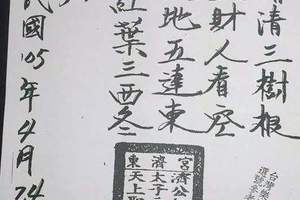 清三樹根
財人看空
地五達東
紅葉三西冬
民國105年4月24
宮濟公
濟太子
東天上聖
台灣樂